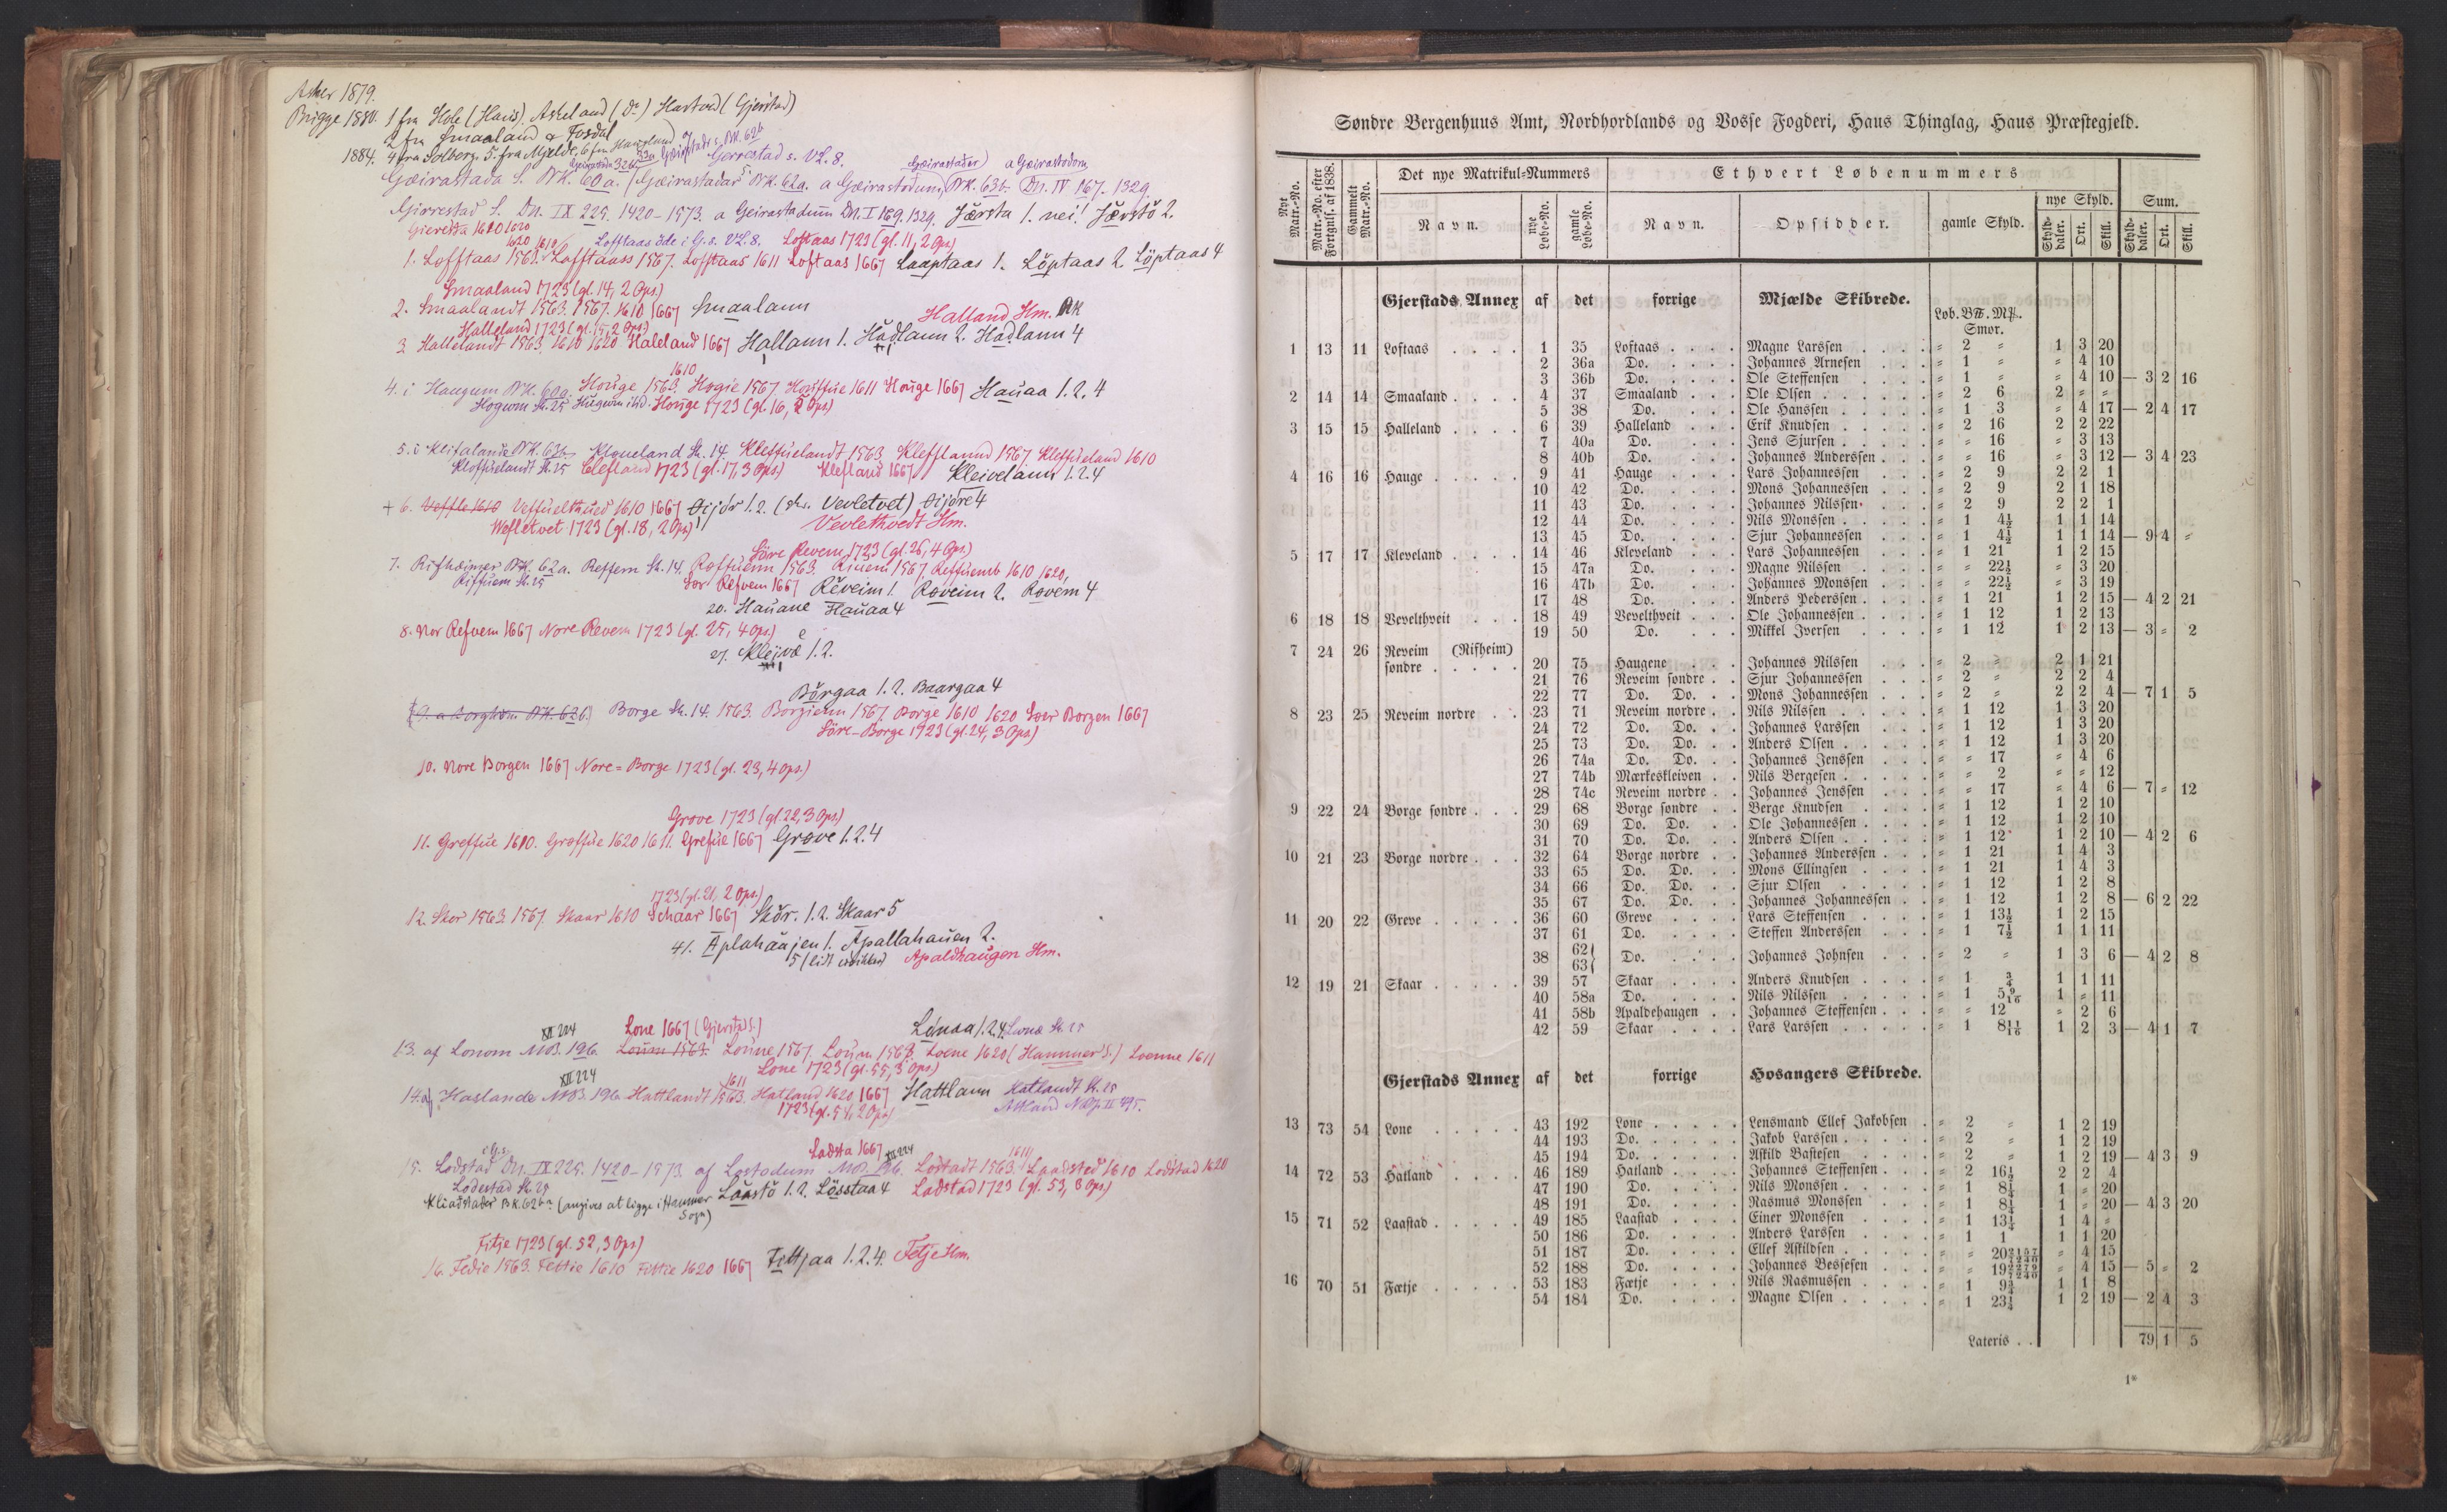 Asker 1879.
Brigge 1880. 1 fra Hole (Haus). Askeland (Do) Hartved (Gjerstad)
2 fra Smaaland & Fosdal
1884. 4 fra Solberg. 5. fra Mjelde, 6 fra Haugland
Gjerrestad s. VL. 8.
Gæirastada S. BK. 60a. (Gæirastadar BK. 62a. a Gæirastodum BK. 63b. Dn. IV 167. 1329.
Girrestad S. Dn. IX 225. 1420-1573. a Geirastadum Dn. I 169. 1329. Järsta 1. nei! Järstö 2.
Lofftaas öde i G.s. VL. 8. Loftaas 1723 (gl. 11, 2 Ops)
1. Lofftaas 1563. Lofftaass 1567. Lofftaas 1611 Loftaas 1667 Laaptaas 1. Löptaas 2. Löptaas 4
Smaaland 1723 (gl. 14, 2 Ops.)
2. Smaalandt 1563. 1567. 1610 1667 Smaalann
Halland Hm.
Halleland 1723 (gl. 15, 2 Ops.)
3. Hallelandt 1563. 1610 1620 Haleland 1667 Hallann 1. Hadlann 2. Hadlann 4
1610
4. i Haugum BK. 60a. Houge 1563. Hogie 1567 Houffue 1611 Houge 1667 Hauaa 1.2.4
Hogum St. 25 Hugum ibid. Houge 1723 (gl. 16, 5 Ops)
5. i Klifalande BK. 63b. Kloueland St. 14. Kleffuelandt 1563 Klefflannd 1567 Kleffueland 1610
Kloffuelandt St. 25 Clefland 1723 (gl. 17, 3 Ops) Klefland 1667 Kleivelann 1.2.4
+ 6. Veffle 1610 Veffuelthued 1610 1667 Øijdr 1.2. (skr. Vevletvet) Øijdre 4
Wefletvet 1723 (gl. 18, 2 Ops) Vevlethvedt Hm.
Søre Revem 1723 (gl. 26, 4 Ops.)
7. Rifhæimar BK. 62a. Reffem St. 14. Roffuem 1563. Riuem 1567. Reffuemb 1610 1620,
Riffuem St. 25 Sør Refvem 1667 Reveim 1. Røveim 2. Røvem 4
20. Hauane Hauaa 4
8. Nor Refvem 1667 Nore Revem 1723 (gl. 25, 4 Ops.)
27. Kleivæ 1.2.
Börgaa 1.2. Baargaa 4
(9. a Borghom BK. 63b.) Borge St. 14. 1563. Borgienn 1567. Borge 1610 1620 Soer Borgen 1667
Söre-Borge 1723 (gl. 24, 3 Ops.)
10. Nore Borgen 1667 Nore-Borge 1723 (gl. 23, 4 Ops.)
Grove 1723 (gl. 22, 3 Ops.)
11. Greffue 1610. Groffue 1620 1611. Grefue 1667 Grøve 1.2.4
1723 (gl. 21, 2 Ops.)
12. Skor 1563. 1567. Skaar 1610 Schaar 1667 Skör. 1.2. Skaar 5
41. Aplahaujen 1. Apallahauen 2.
Apaldhaugen Hm.
XII 224 Lone 1667 (Gjerstad S.) Lonaa 1.2.4 Lone St. 25
13. af Lonom MB. 19b. Loum 1563. Lonne 1567. Loum 1563. Loene 1620 (Hammer S.) Loenne 1611
Lone 1723 (gl. 55, 3 Ops.)
XII 224 1611
14. af Haslande MB. 19b. Hattlandt 1563. Hatland 1620 1667 Hattlann Hatlandt St. 25
1723 (gl. 54, 2 Ops)
Ladsta 1667 XII 224
15. Lodstad Dn. IX 225. 1420-1573 af Lostodum MB. 19b. Lostadt 1563. Landsted 1610 Lodstad 1620
Lodestad St. 25 Laastö 1.2. Lösstaa 4 Ladstad 1723 (gl. 53, 3 Ops.)
Kliadstader BK. 62b (angives at ligge i Hammer Sogn)
Fitje 1723 (gl. 52, 3 Ops)
16. Fedie 1563. Fettie 1610 Fittie 1620 1667 Fettjaa 1.2.4. Fetje Hm.
Søndre Bergenhuus Amt, Nordhordlands og Vosse Fogderi, Haus Thinglag, Haus Præstegjeld.
Nye Matr.-No. Matr.-No. efter Fortgnls. af 1838. Gammelt Matr.-No. Det nye Matrikul-Nummers Ethvert Løbenummers Sum.
Navn. nye Løbe-No. gamle Løbe-No. Navn. Opsidder. gamle Skyld. nye Skyld.
Skylddaler. Ort. Skill. Skylddaler. Ort. Skill.
Gjerstads Annex af det forrige Mjælde Skibrede.
Løb. B℔. M℔. Smør.
1 13 11 Loftaas 1 35 Loftaas Magne Larssen = 2 = 1 3 20
2 36a Do. Johannes Arnesen = 1 = = 4 10
3 36b Do. Ole Steffensen = 1 = = 4 10 — 3 2 16
2 14 14 Smaaland 4 37 Smaaland Ole Olsen = 2 6 2 = =
5 38 Do. Ole Hanssen = 1 3 = 4 17 — 2 4 17
3 15 15 Halleland 6 39 Halleland Erik Knudsen = 2 16 2 2 22
7 40a Do. Jens Sjursen = = 16 = 3 13
8 40b Do. Johannes Anderssen = = 16 = 3 12 — 3 4 23
4 16 16 Hauge 9 41 Hauge Lars Johannessen = 2 9 2 2 1
10 42 Do. Mons Johannessen = 2 9 2 1 18
11 43 Do. Johannes Nilssen = 2 9 2 2 1
12 44 Do. Nils Monssen = 1 4½ 1 1 14
13 45 Do. Sjur Johannessen = 1 4½ 1 1 14 — 9 4 =
5 17 17 Kleveland 14 46 Kleveland Lars Johannessen = 1 21 1 2 15
15 47a Do. Magne Nilssen = = 22½ = 3 20
16 47b Do. Johannes Monssen = = 22½ = 3 19
17 48 Do. Anders Pederssen = 1 21 1 2 15 — 4 2 21
6 18 18 Vevelthveit 18 49 Vevelthveit Ole Johannessen = 1 12 1 2 13
19 50 Do. Mikkel Iversen = 1 12 1 2 13 — 3 = 2
7 24 26 Reveim (Rifheim)
søndre 20 75 Haugene Johannes Nilssen = 2 = 2 1 21
21 76 Reveim søndre Sjur Johannessen = 2 = 2 2 4
22 77 Do. Do. Mons Johannessen = 2 = 2 2 4 — 7 1 5
8 23 25 Reveim nordre 23 71 Reveim nordre Nils Nilssen = 1 12 1 3 20
24 72 Do. Do. Johannes Larssen = 1 12 1 3 20
25 73 Do. Do. Anders Olsen = 1 12 1 3 20
26 74a Do. Do. Johannes Jenssen = = 17 = 4 6
27 74b Mærkeskleiven Nils Bergesen = = 2 = = 12
28 74c Reveim nordre Johannes Jenssen = = 17 = 4 6 — 7 = 12
9 22 24 Borge søndre 29 68 Borge søndre Berge Knudsen = 1 12 1 2 10
30 69 Do. Do. Ole Johannessen = 1 12 1 2 10
31 70 Do. Do. Anders Olsen = 1 12 1 2 10 — 4 2 6
10 21 23 Borge nordre 32 64 Borge nordre Johannes Anderssen = 1 21 1 4 3
33 65 Do. Do. Mons Ellingsen = 1 21 1 4 3
34 66 Do. Do. Sjur Olsen = 1 12 1 2 8
35 67 Do. Do. Johannes Johannessen = 1 12 1 2 8 — 6 2 22
11 20 22 Greve 36 60 Greve Lars Steffensen = 1 13½ 1 2 15
37 61 Do. Steffen Anderssen = 1 7½ 1 1 11
38 62 63 Do. Johannes Johnsen = 2 = 1 3 6 — 4 2 8
12 19 21 Skaar 39 57 Skaar Anders Knudsen = 1 ¾ 1 1 11
40 58a Do. Nils Nilssen = 1 5 9/16 1 = 11
41 58b Apaldehaugen Johannes Steffensen = = 12 = 2 6
42 59 Skaar Lars Larssen = 1 8 11/16 1 2 3 — 4 1 7
Gjerstads Annex af det forrige Hosangers Skibrede.
13 73 54 Lone 43 192 Lone Lensmand Ellef Jakobsen = 2 = 1 2 19
44 193 Do. Jakob Larssen = 2 = 1 2 19
45 194 Do. Askild Bastesen = 2 = 1 2 19 — 4 3 9
14 72 53 Hatland 46 189 Hatland Johannes Steffensen = 2 16½ 2 2 4
47 190 Do. Nils Monssen = 1 8¼ 1 = 20
48 191 Do. Rasmus Monssen = 1 8¼ 1 = 20 — 4 3 20
15 71 52 Laastad 49 185 Laastad Einer Monssen = 1 13¼ 1 4 =
50 186 Do. Anders Larssen = 1 1 1 1 20
51 187 Do. Ellef Askildsen = = 20 = 4 15
52 188 Do. Johannes Bessesen = = 19 = 4 15 — 5 = 2
16 70 51 Fætje 53 183 Fætje Nils Rasmussen = 1 9¾ 1 1 8
54 184 Do. Magne Olsen = 1 23¼ 1 2 19 — 2 4 3
Lateris 79 1 5
1*